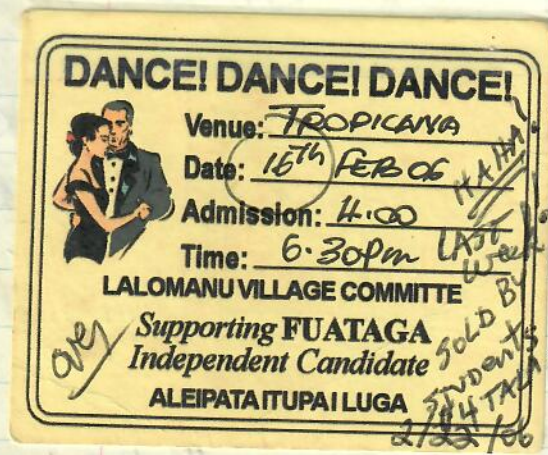 DANCE! DANCE! DANCE!
Venue: TROPICANA
Date: 16Th FEB 06
Admission: 4.00
Time: 6.30pm
LALOMANU VILLAGE COMMITTE
Supporting FUATAGA
Independent Candidate
ALEIPATA ITUPA I LUGA
over
HAHA!
LAST
Week
SOLD BY
STUDENTS
$4 TALA
2/22/06